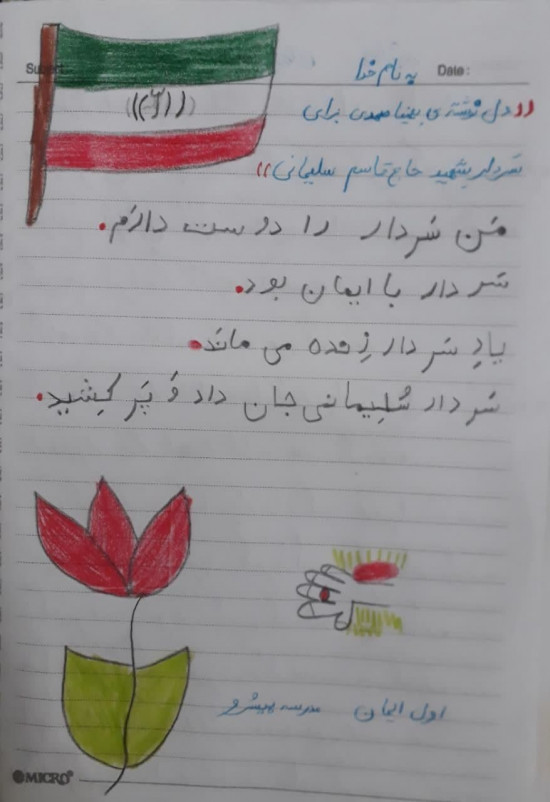 Subject:
به نام خدا
Date:
((دل نوشته ی بینا صمدی برای
سردار شهید حاج قاسم سلیمانی))
مَن سَردار را دوست دارَم.
سَردار با ایمان بود.
یادِ سَردار زِنده می ماند.
سَردار سُلِیمانی جان داد وَ پَر کِشید.
اول ایمان مدرسه پیشرو
MICRO